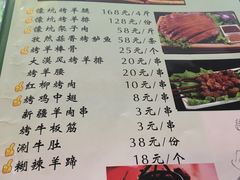 馕坑烤羊腿 168元/4斤
馕坑烤羊排 128元/份
馕坑架子肉 58元/斤
孜然蒜香烤鲈鱼 58元/份
烤羊棒骨 25元/个
大漠风烤羊排 20元/串
烤羊腰 20元/串
红柳烤肉 10元/串
烤鸡中翅 8元/串
新疆羊肉串 3元/串
烤牛板筋 3元/串
涮牛肚 38元/份
椒辣羊蹄 18元/个